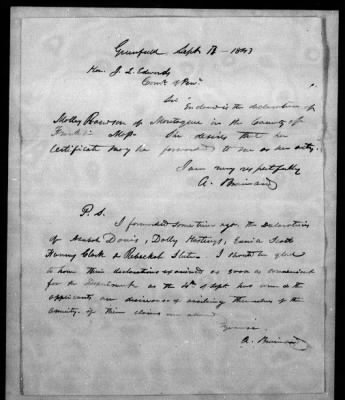 Greenfield Sept 12 - 1843
Hon. J. L. Edwards
Comr of Pens.
Sir
Enclosed is the declaration of
Molly Rawson of Montague in the County of
Franklin Mass. She desires that her
Certificate may be forwarded to me as her atty.
I am very respectfully
A. Brainard
P. S.
I forwarded some time ago, the declarations
of Davis, Dolly Hastings, Scott
Clark & Rebeckah Slate. I should be glad
to have their declarations examined as soon as convenient
for the Department as the 4th of Sept has and the
applicants are desirous of availing themselves of the
annuity if their claims are
A. Brainard